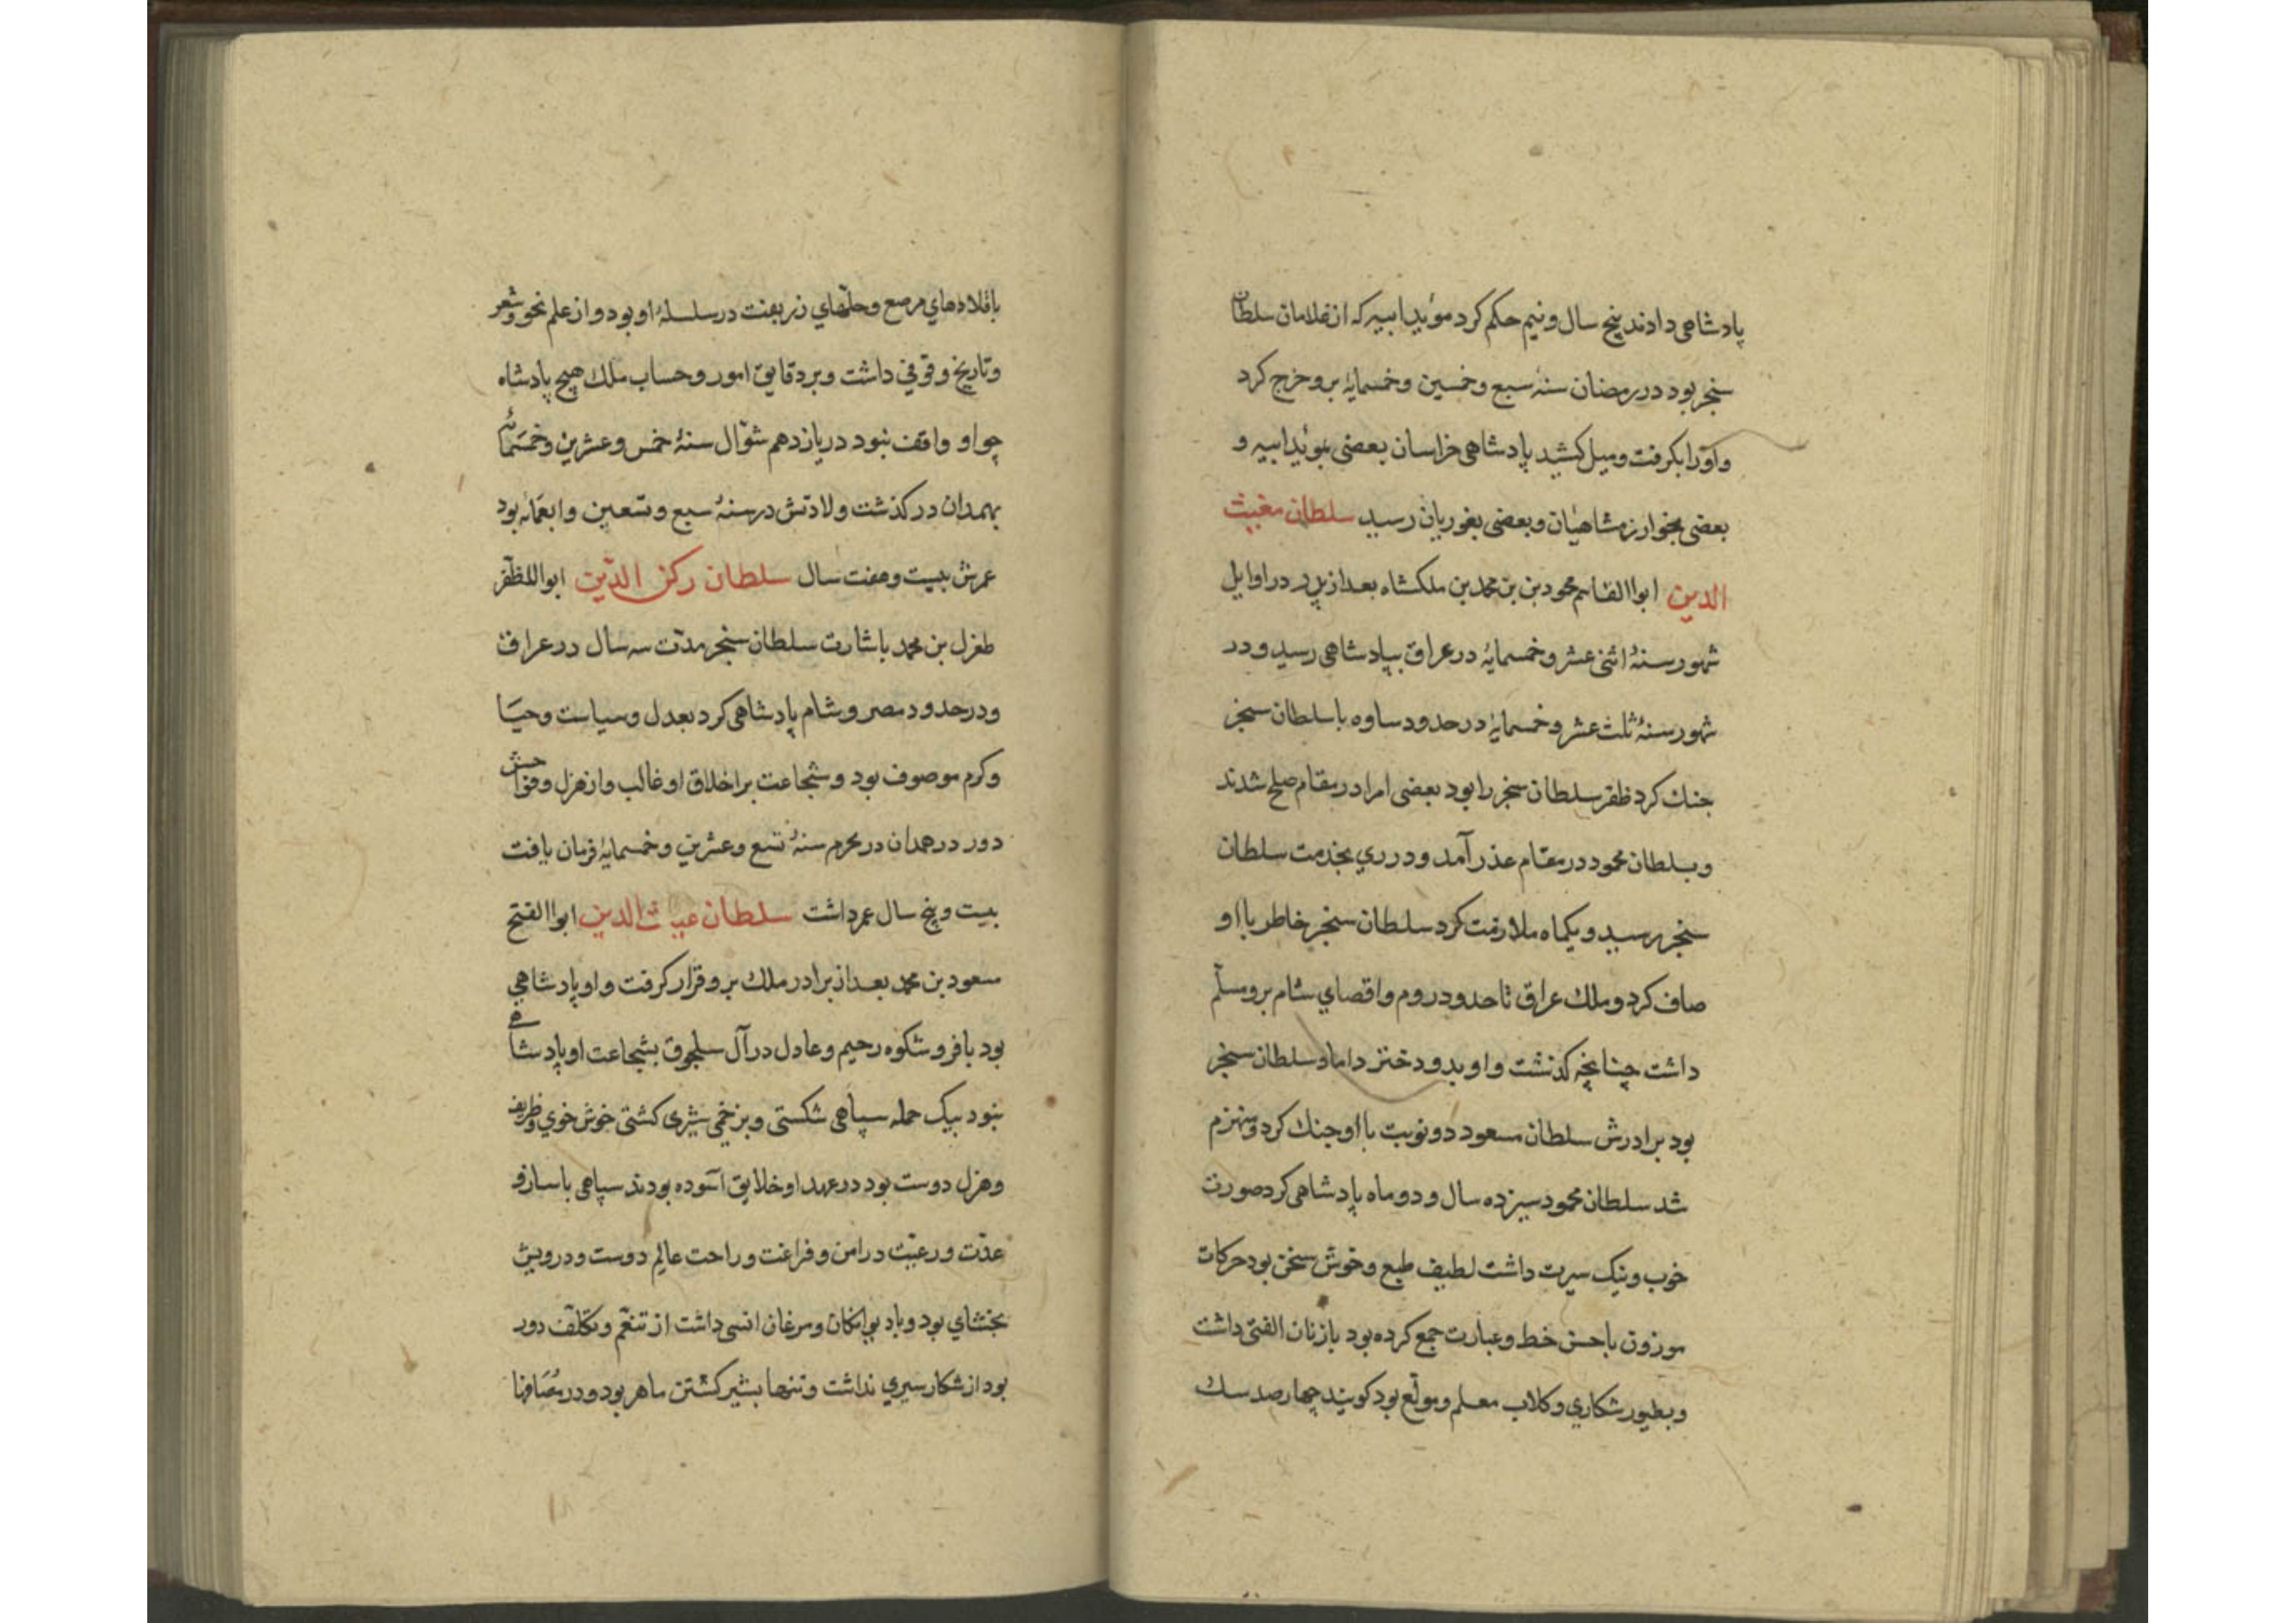 پادشاهی دادند پنج سال و نیم حکم کرد مؤید ابیه که از غلامان سلطان
سنجر بود در رمضان سنهٔ سبع وخمسین وخمسمایهٔ بر و خرج کرد
واورا بکرفت و میل کشید پادشاهی خراسان بعضی بمؤید ابیه و
بعضی بخوارزمشاهیان و بعضی بغوریان رسید سلطان مغیث
الدین ابواالقاسم محمود بن بن محمد بن ملکشاه بعد از پدر در اوایل
شهور سنهٔ اثنی عشر و خمسمایهٔ در عراق بپادشاهی رسید و در
شهور سنهٔ ثلث عشر و خمسمایهٔ در حدود ساوه با سلطان سنجر
جنك کرد ظفر سلطان سنجر را بود بعضی امرا در مقام صلح شدند
و سلطان محمود در مقام عذر آمد و در ري بخدمت سلطان
سنجر رسید و یکماه ملازمت کرد سلطان سنجر خاطر با او
صاف کرد و ملك عراق تا حدود روم و اقصاي شام برو مسلّم
داشت چنانچه کذشت و او بدو دختر داماد سلطان سنجر
بود برادرش سلطان مسعود دو نوبت با او جنك کرد و منهزم
شد سلطان محمود سیزده سال و دو ماه پادشاهی کرد صورت
خوب و نیك سیرت داشت لطیف طبع و خوش سخن بود حرکات
موزون با حسن خط و عبارت جمع کرده بود با زنان الفتی داشت
و بطیور شکاري و کلاب معلم و مولع بود کویند چهارصد سك
با قلادهاي مرصع و جلّهاي زربفت در سلسلهٔ او بود و از علم نحو و شعر
و تاریخ وقوفي داشت و بر دقایق امور و حساب ملك هیچ پادشاه
چو او واقف نبود در یازدهم شوّال سنهٔ خمس و عشرین و خمسمائه
بهمدان در کذشت ولادتش در سنهٔ سبع و تسعین وابعمائه بود
عمرش بیست و هفت سال سلطان رکن الدّین ابواالمظفّر
طغرل بن محمد باشارت سلطان سنجر مدّت سه سال در عراق
و در حدود مصر و شام پادشاهی کرد بعدل و سیاست و حیا
و کرم موصوف بود و شجاعت بر اخلاق او غالب و از هزل و فواحش
دور در همدان در محرم سنهٔ تسع و عشرین و خمسمایهٔ فرمان یافت
بیست و پنج سال عمر داشت سلطان غیاث الدین ابواالفتح
مسعود بن محمد بعد از برادر ملك بر و قرار کرفت و او پادشاهی
بود با فر و شکوه رحیم و عادل در آل سلجوق بشجاعت او پادشاهی
نبود بیک حمله سپاهی شکستی و بزخمی شیری کشتی خوش خوي و ظریف
و هزل دوست بود در عهد او خلایق آسوده بودند سپاهی با ساز و
عدّت و رعیّت در امن و فراغت و راحت عالم دوست و درویش
بخشاي بود و با دیوانکان و مرغان انسی داشت از تنعّم و تکلّف دور
بود از شکار سیري نداشت و تنها بشیر کشتن ماهر بود و در مصافها